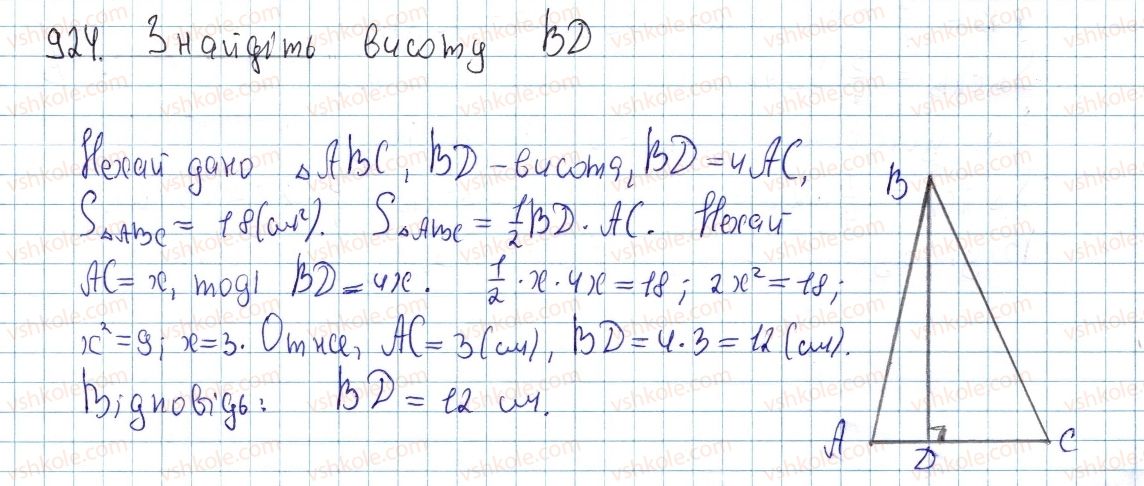 924. Знайдіть висоту BD
Нехай дано △ABC, BD – висота, BD = 4AC,
S△ABC = 18(см²). S△ABC = 1/2 BD · AC. Нехай
AC = x, тоді BD = 4x. 1/2 · x · 4x = 18; 2x² = 18;
x² = 9; x = 3. Отже, AC = 3 (см), BD = 4 · 3 = 12 (см).
Відповідь: BD = 12 см.
B
A
D
C